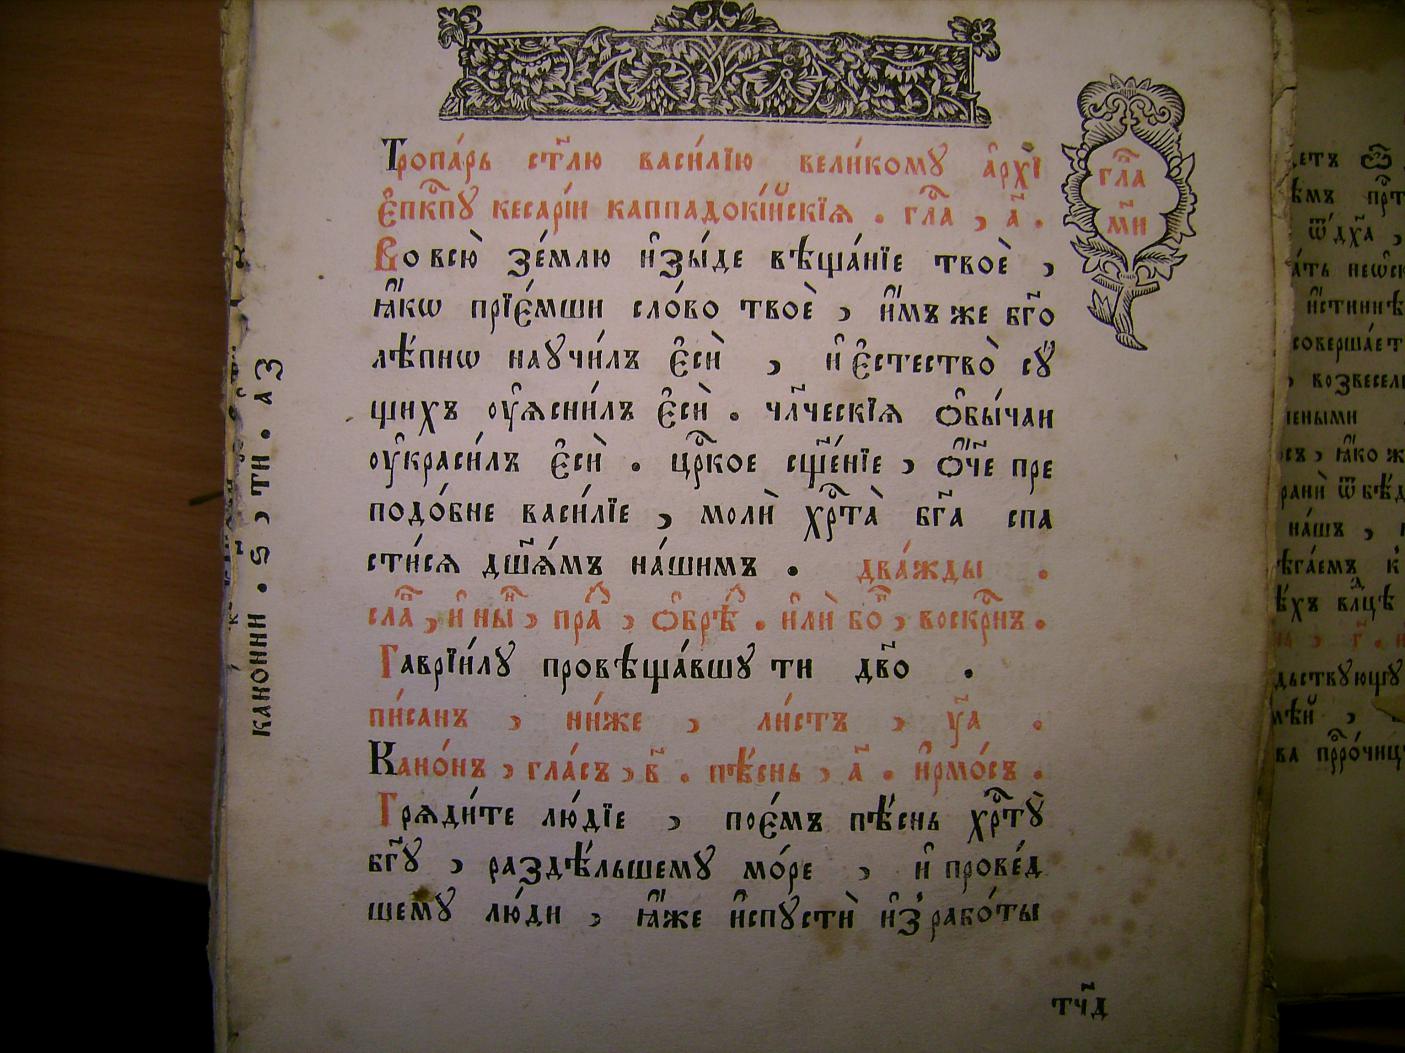 Тропа́рь ст҃лю васи́лїю вели́комꙋ а҆рхї
є҆пкⷭ҇пꙋ кесарі́и каппадокі́йскїѧ . глⷭ҇а , а҃ .
Во всю̀ зе́млю и҆зы́де вѣща́нїе твоѐ ,
ꙗ҆́кѡ прїе́мши сло́во твоѐ , и҆́мъ же бг҃о
лѣ́пнѡ наꙋчи́лъ є҆сѝ , и҆ є҆стество̀ сꙋ́
щихъ ᲂу҆ѧсни́лъ є҆сѝ . чл҃ческїѧ ѻ҆бы́чаи
ᲂу҆краси́лъ є҆сѝ . црⷭ҇кое сщ҃е́нїе , ѻ҆́ч҃е пре
подо́бне васи́лїе , молѝ хрⷭ҇та̀ бг҃а спа
сти́сѧ дш҃ѧ́мъ на́шимъ . два́жды .
сла́ⷡ , и҆ ны́ⷩ , праⷥ , ѻ҆брѣⷥ . и҆лѝ боⷢ , воскрⷭ҇нъ .
Гаврїи́лꙋ провѣща́вшꙋ ти дв҃о .
пи́санъ , ни́же , ли́стъ , у҃а .
Кано́нъ , гла́съ , в҃ . пѣ́снь , а҃ . и҆рмо́съ .
Грѧди́те лю́дїе , пое́мъ пѣ́снь хрⷭ҇тꙋ̀
бг҃ꙋ , раздѣ́льшемꙋ мо́ре , и҆ прове́д
шемꙋ лю́ди , ꙗ҆̀же и҆спꙋстѝ и҆з̾ рабо́ты
глⷡ҇а
м҃и
канони . ѕ , ти . аз
тч҃д